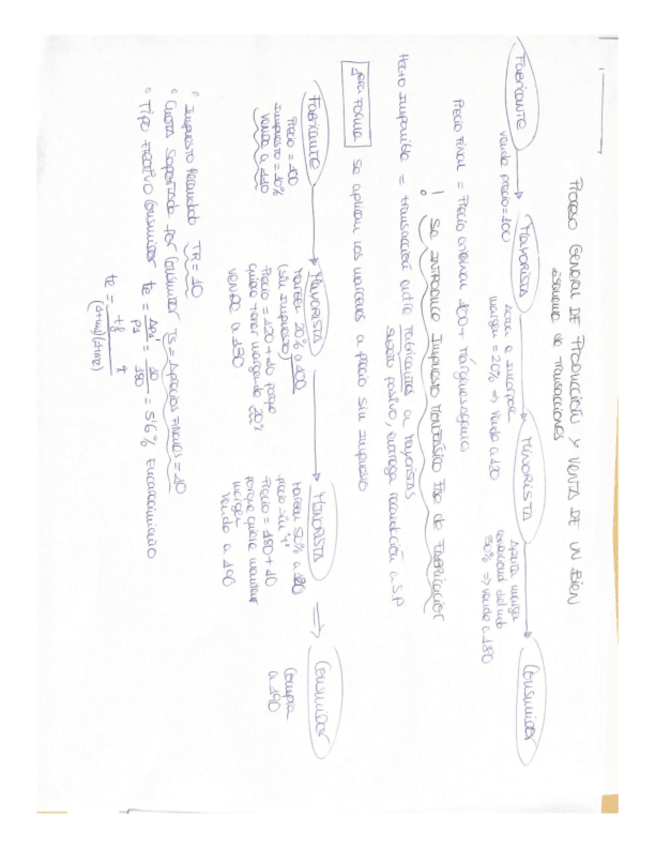 PROCESO GENERAL DE PRODUCCIÓN Y VENTA DE UN BIEN
esquema de transacciones
FABRICANTE → MAYORISTA → MINORISTA → CONSUMIDOR
vende precio=100
margen = 20% => vende a 120
Aplica margen
50% => vende a 180
Precio Final = Precio inicial 100 + márgenes
! SE INTRODUCE IMPUESTO MONOFÁSICO FASE de FABRICACIÓN
Hecho Imponible = transacción entre Fabricantes a mayoristas
Sujeto pasivo, entrega recaudación a S.P
FORMA se aplican los márgenes a precio sin impuesto
FABRICANTE → MAYORISTA → MINORISTA => CONSUMIDOR
Precio = 100
Impuesto = 10%
Vende a 110
MARGEN 20% a 100
(sin impuesto)
Precio = 120+10 porque
quiere tener margen de 20%
VENDE a 130
Margen 50% a 120
precio sin "t"
Precio = 180+10
porque quiere mantener
margen
Vende a 190
Compra
a 190
° IMPUESTO Recaudado TR = 10
° Cuota soportada por consumidor TS = Δprecios FINALES = 10
° TIPO EFECTIVO Consumidor te = 10/180 = 5'6% Encarecimiento
te =